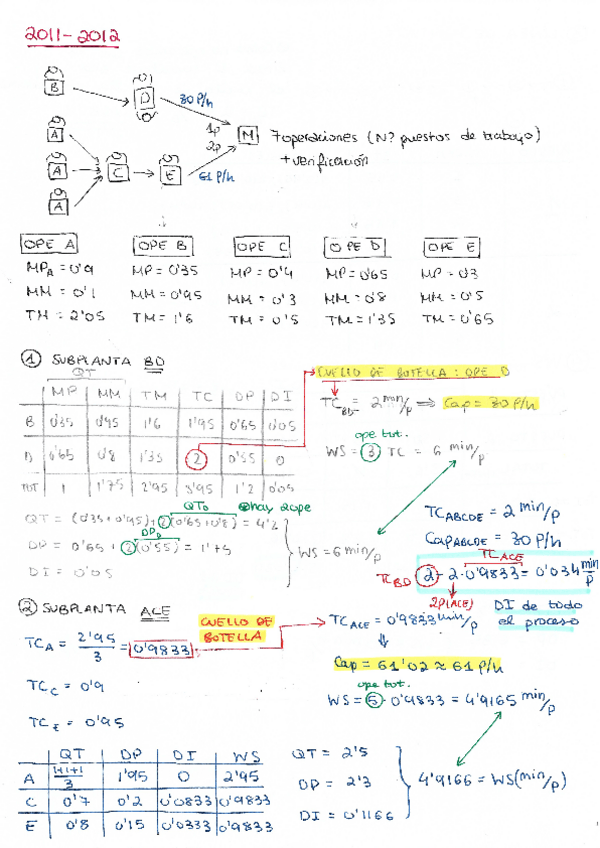 2011-2012
B
D
30 P/h
A
1p
M
7 operaciones (Nº puestos de trabajo)
2p
+ verificación
A
C
E
61 P/h
A
OPE A OPE B OPE C OPE D OPE E
MPA = 0'9 MP = 0'35 MP = 0'4 MP = 0'65 MP = 0'3
MM = 0'1 MM = 0'95 MM = 0'3 MM = 0'8 MM = 0'5
TM = 2'05 TM = 1'6 TM = 0'5 TM = 1'35 TM = 0'65
① SUBPLANTA BD
CUELLO DE BOTELLA: OPE D
QT
MP MM TM TC DP DI
B 0'35 0'95 1'6 1'95 0'65 0'05
D 0'65 0'8 1'35 2 0'55 0
TOT 1 1'75 2'95 3'95 1'2 0'05
TCBD = 2 min/p ⇒ Cap = 30 P/h
ope tot.
WS = 3 TC = 6 min/p
QTD hay 2ope
QT = (0'35+0'95)+2(0'65+0'8) = 4'2
DPD
DP = 0'65 + 2(0'55) = 1'75
DI = 0'05
WS = 6 min/p
TCABCDE = 2 min/p
CapABCDE = 30 P/h
TCACE
TCBD 2 - 2·0'9833 = 0'034 min/p
2P(ACE)
DI de todo el proceso
② SUBPLANTA ACE
CUELLO DE BOTELLA
TCA = 2'95/3 = 0'9833
TCACE = 0'9833 min/p
TCC = 0'9
Cap = 61'02 ≈ 61 P/h
ope tot.
WS = 5·0'9833 = 4'9165 min/p
TCE = 0'95
QT DP DI WS
A 1+1+1/3 1'95 0 2'95
C 0'7 0'2 0'0833 0'9833
E 0'8 0'15 0'0333 0'9833
QT = 2'5
DP = 2'3
DI = 0'1166
4'9166 = WS (min/p)